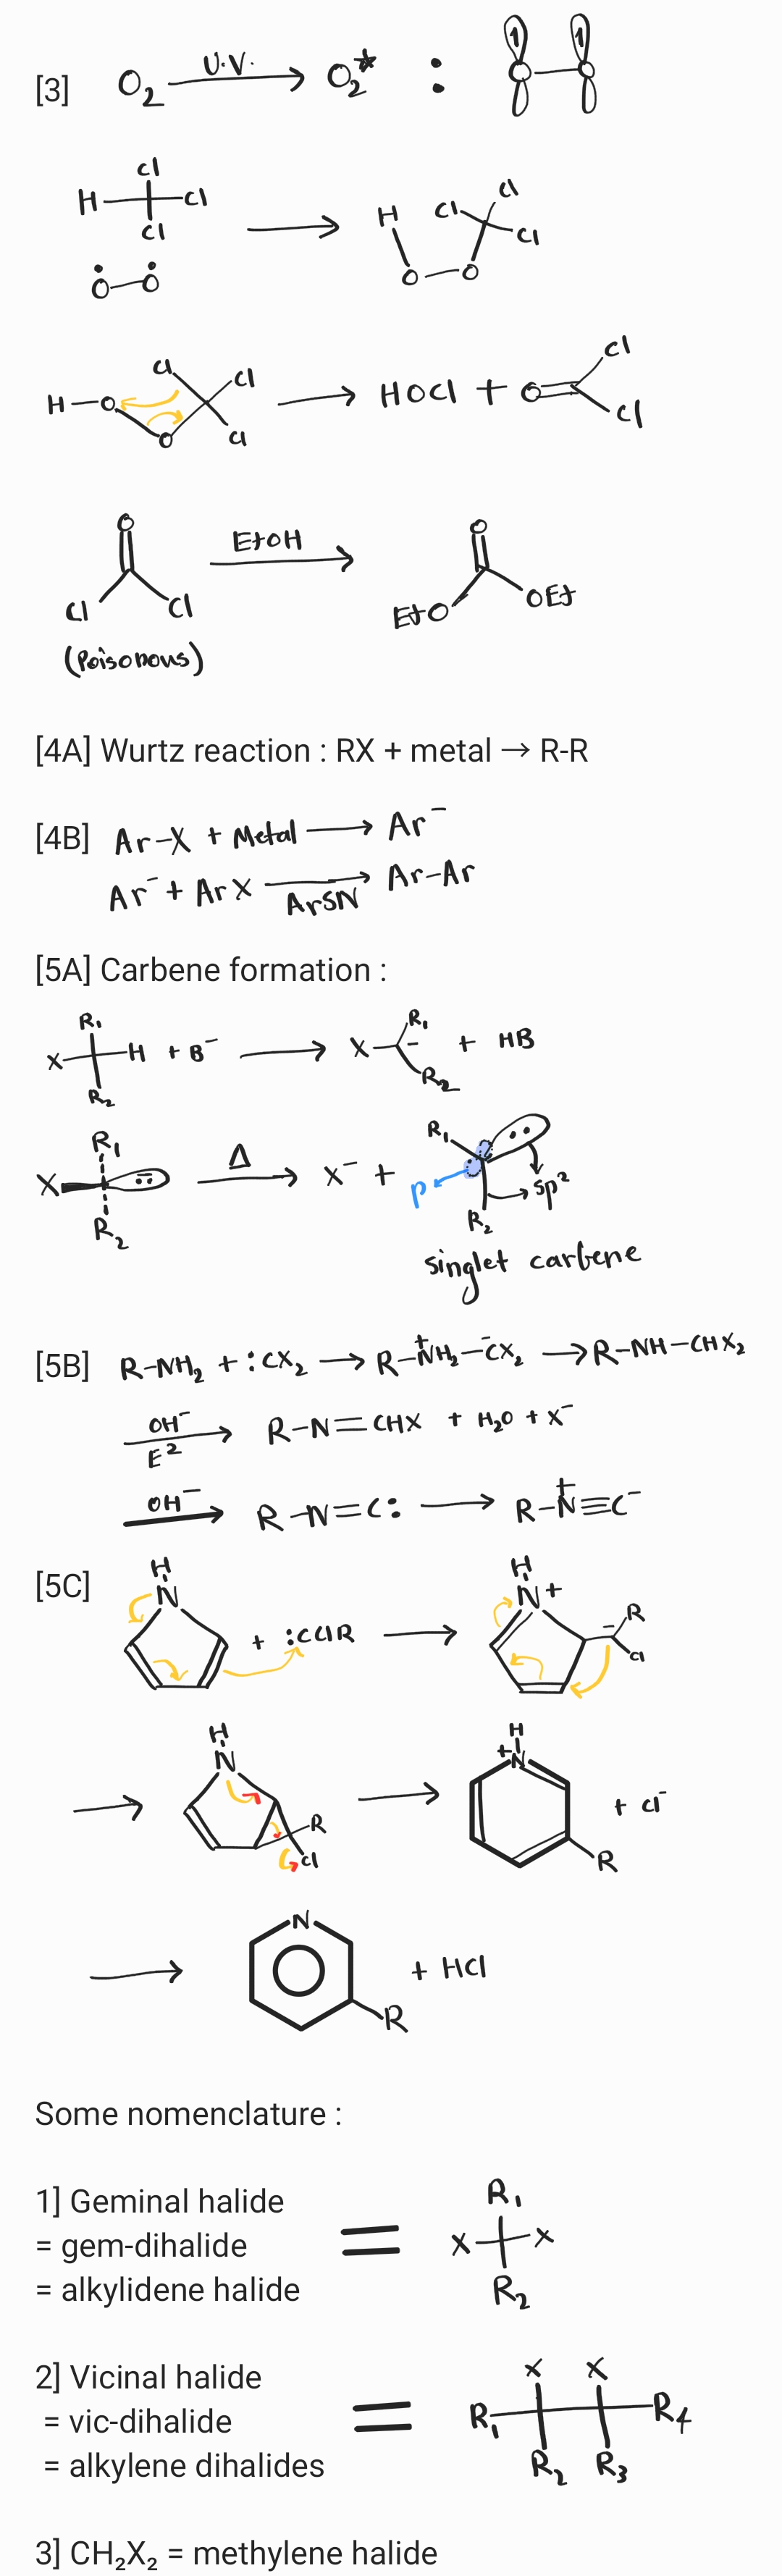 [3] O₂ U.V. → O₂* :
Cl
H Cl
Cl
→
H Cl Cl
Cl
O O
O O
Cl Cl
H-O → HOCl + O Cl
O Cl
Cl
O EtOH → O
Cl Cl EtO OEt
(Poisonous)
[4A] Wurtz reaction : RX + metal → R-R
[4B] Ar-X + Metal → Ar⁻
Ar⁻ + ArX → Ar-Ar
ArSN
[5A] Carbene formation :
R₁ R₁
X H + B⁻ → X - + HB
R₂ R₂
R₁ R₁
X Δ → X⁻ +
p sp²
R₂ R₂
singlet carbene
[5B] R-NH₂ + :CX₂ → R-N⁺H₂-C⁻X₂ → R-NH-CHX₂
OH⁻ → R-N=CHX + H₂O + X⁻
E²
OH⁻ → R-N=C: → R-N⁺≡C⁻
[5C] H H
N + :CClR → N + - R
Cl
H H
→ N → +N + Cl⁻
R
Cl R
→ N + HCl
R
Some nomenclature :
1] Geminal halide
= gem-dihalide
= alkylidene halide
= R₁
X X
R₂
2] Vicinal halide
= vic-dihalide
= alkylene dihalides
= X X
R₁ R₄
R₂ R₃
3] CH₂X₂ = methylene halide